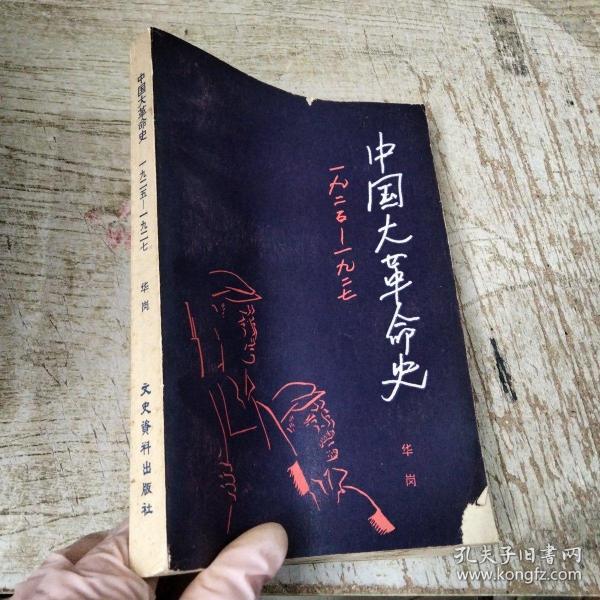 中国大革命史 一九二五—一九二七 华岗 文史資料出版社
中国大革命史
一九二五—一九二七
华岗
孔夫子旧书网
www.kongfz.com